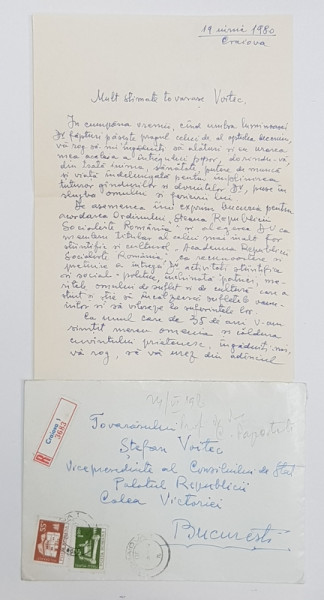 19 iunie 1980
Craiova
Mult stimate tovarășe Voitec,
În cumpăna vremii, cînd umbra luminoasei
De făpturi pășește pragul celui de al optulea deceniu,
vă rog să-mi îngăduiți să alătur și eu urarea
mea aceleia a întregului popor, dorindu-vă,
din toată inima, sănătate, putere de muncă
și viață îndelungată pentru împlinirea
tuturor gîndurilor și dorințelor DV, puse în
slujba omului și fericirii lui.
De asemenea îmi exprim bucuria pentru
acordarea Ordinului „Steaua Republicii
Socialiste România” și alegerea D-V ca
membru titular al celui mai înalt for
științific și cultural „Academia Republicii
Socialiste România”, ca recunoaștere și
prețuire a întregii activități științifice
și social-politice, închinată patriei,
omului de suflet și de cultură care a
știut și știe să încălzească sufletele
Ca unul care de 35 de ani v-am
simțit mereu omenia și căldura
cuvîntului prietenesc, îngăduiți-mi,
vă rog, să vă urez din adîncul
R
Craiova 1
3683
Tovarășului
Ștefan Voitec
Vicepreședinte al Consiliului de Stat
Palatul Republicii
Calea Victoriei
București
55